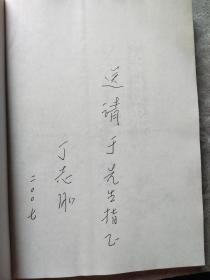 送请于先生指正
丁志刚
二〇〇七